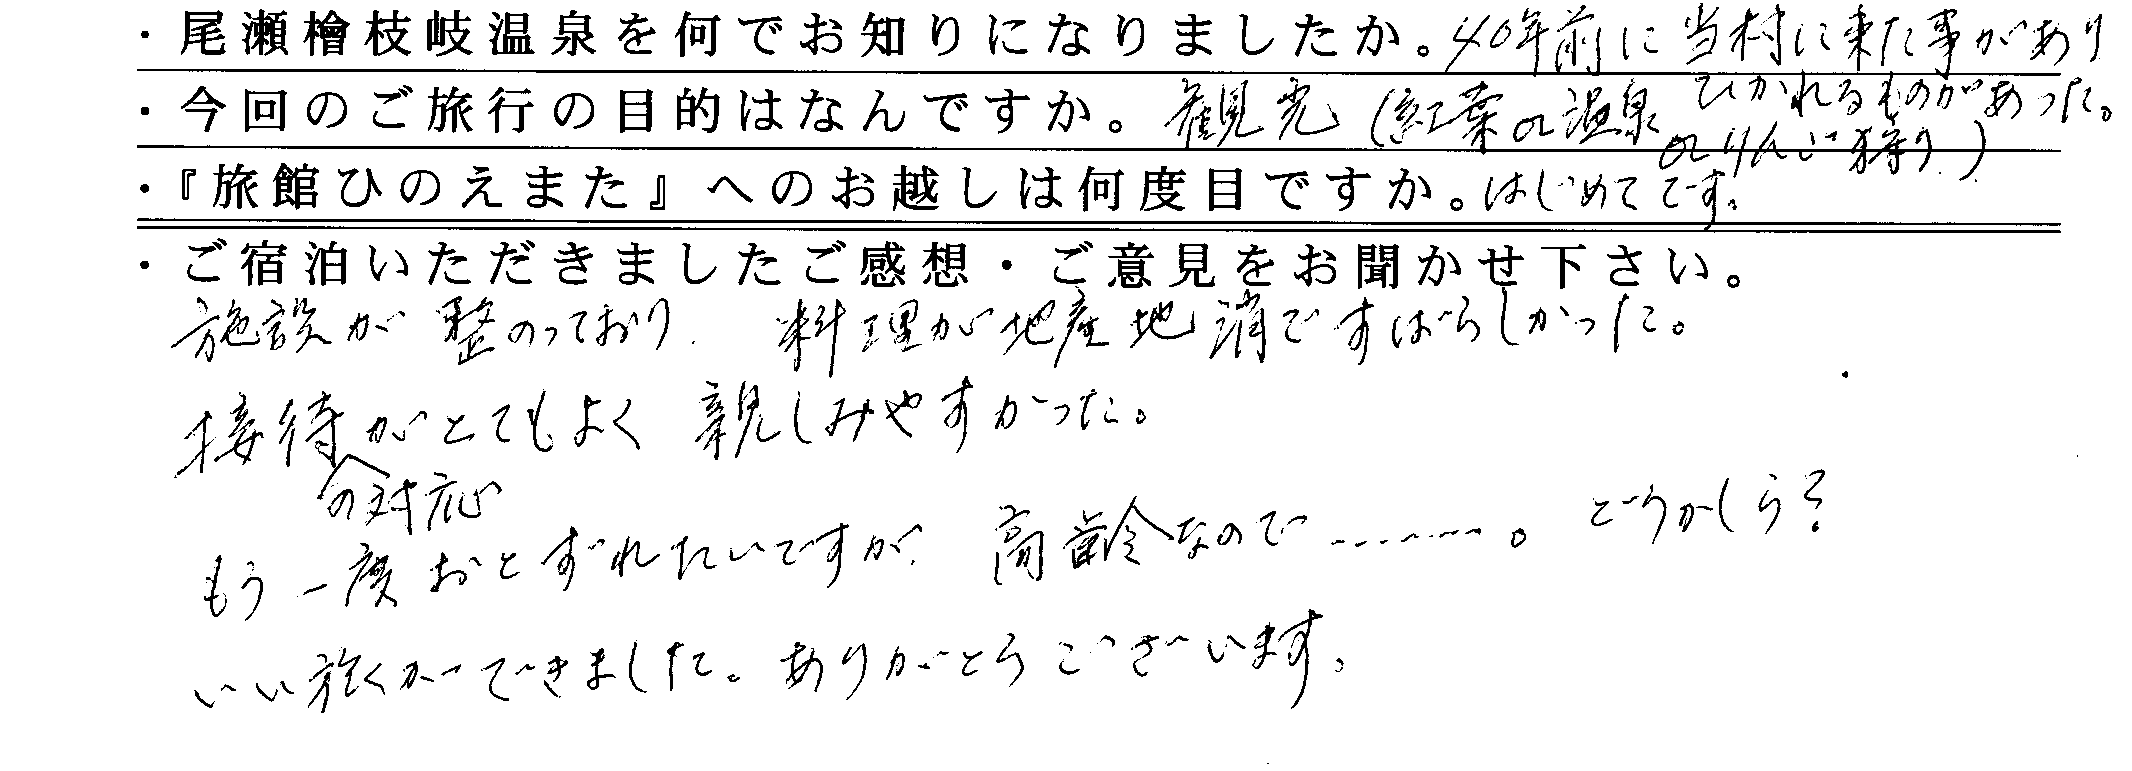 ・尾瀬檜枝岐温泉を何でお知りになりましたか。40年前に当村に来た事があり
ひかれるものがあった。
・今回のご旅行の目的はなんですか。観光(紅葉or温泉
orりんご狩り)
・『旅館ひのえまた』へのお越しは何度目ですか。はじめてです。
・ご宿泊いただきましたご感想・ご意見をお聞かせ下さい。
施設が整のっており、料理が地産地消ですばらしかった。
接待がとてもよく親しみやすかった。
の対応
もう一度おとずれたいですが、高齢なので………。どうかしら?
いい旅ができました。ありがとうございます。